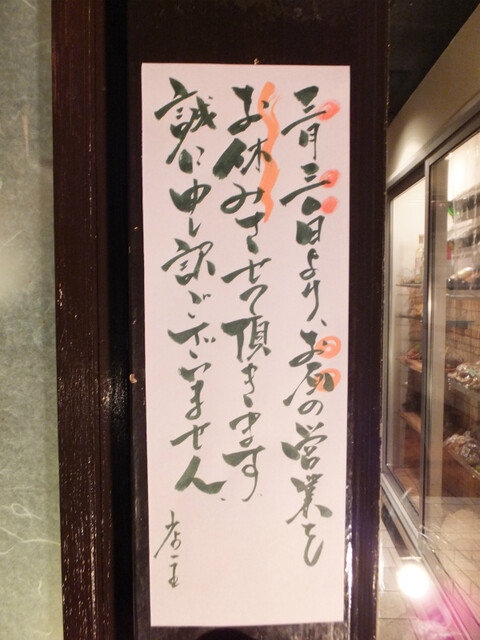 三月三〇日より、お昼の営業を
お休みさせて頂きます。
誠に申し訳ございません。
店主